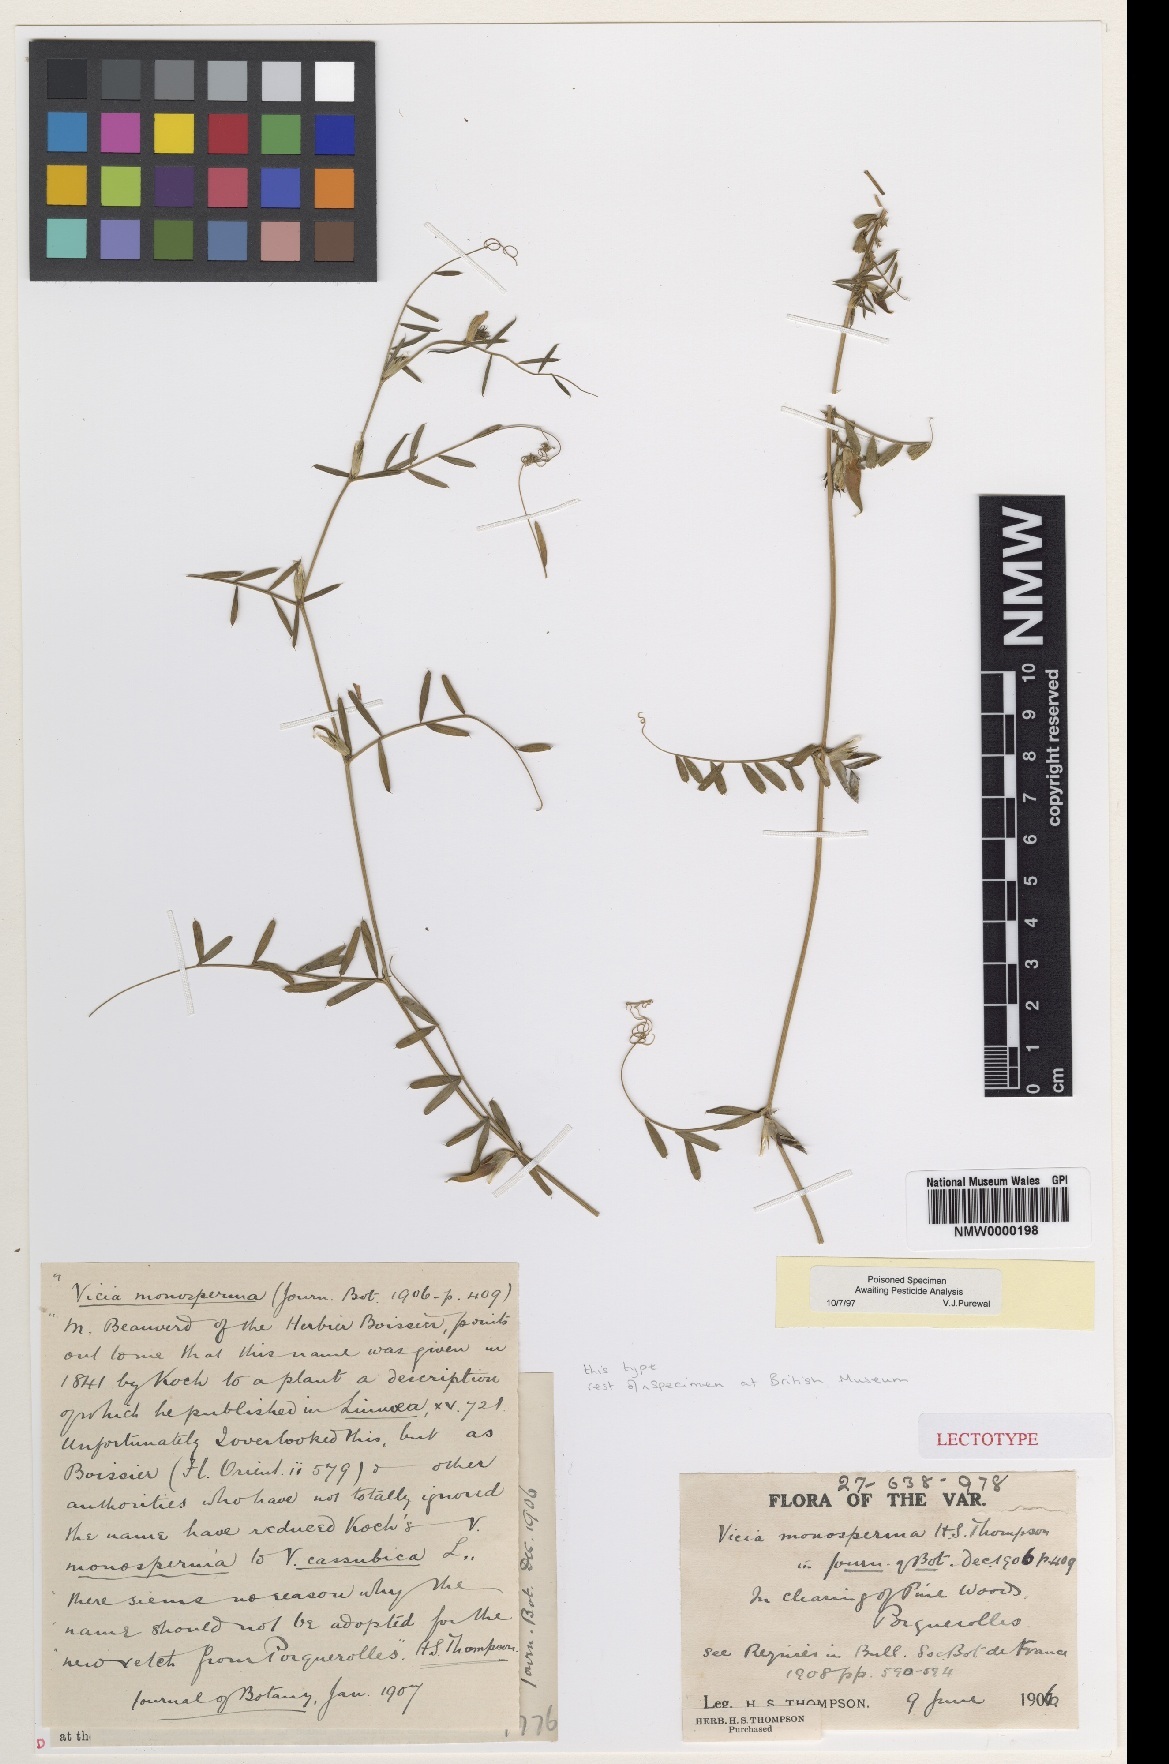 NMW
10
9
8
7
6
5
4
3
2
1
0
cm
copyright reserved
National Museum Wales GPI
NMW0000198
Poisoned Specimen
Awaiting Pesticide Analysis
10/7/97 V.J.Purewal
this type
rest of specimen at British Museum
LECTOTYPE
" Vicia monosperma (Journ. Bot. 1906 - p. 409)
" M. Beauverd of the Herbier Boissier, points
out to me that this name was given in
1841 by Koch to a plant a description
of which he published in Linnæa, xv. 721.
Unfortunately I overlooked this, but as
Boissier (Fl. Orient. ii 579) & other
authorities who have not totally ignored
the name have reduced Koch's V.
monosperma to V. cassubica L.,
there seems no reason why the
name should not be adopted for the
new vetch from Porquerolles". H.S. Thompson.
Journal of Botany, Jan. 1907
Journ. Bot. Dec. 1906
776
at the
D
27-638-978
FLORA OF THE VAR.
Vicia monosperma H.S. Thompson
in Journ. of Bot. Dec. 1906 p. 409
In clearing of Pine Woods,
Porquerolles
see in Bull. Soc Bot de France
1908 pp. 590-594
Leg. H. S. THOMPSON. 9 June 1906
HERB. H. S. THOMPSON
Purchased